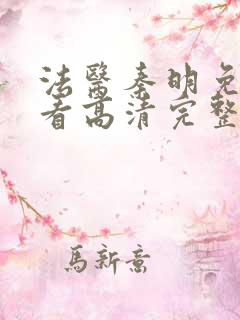 法醫秦明免
看高清完整
馬新意